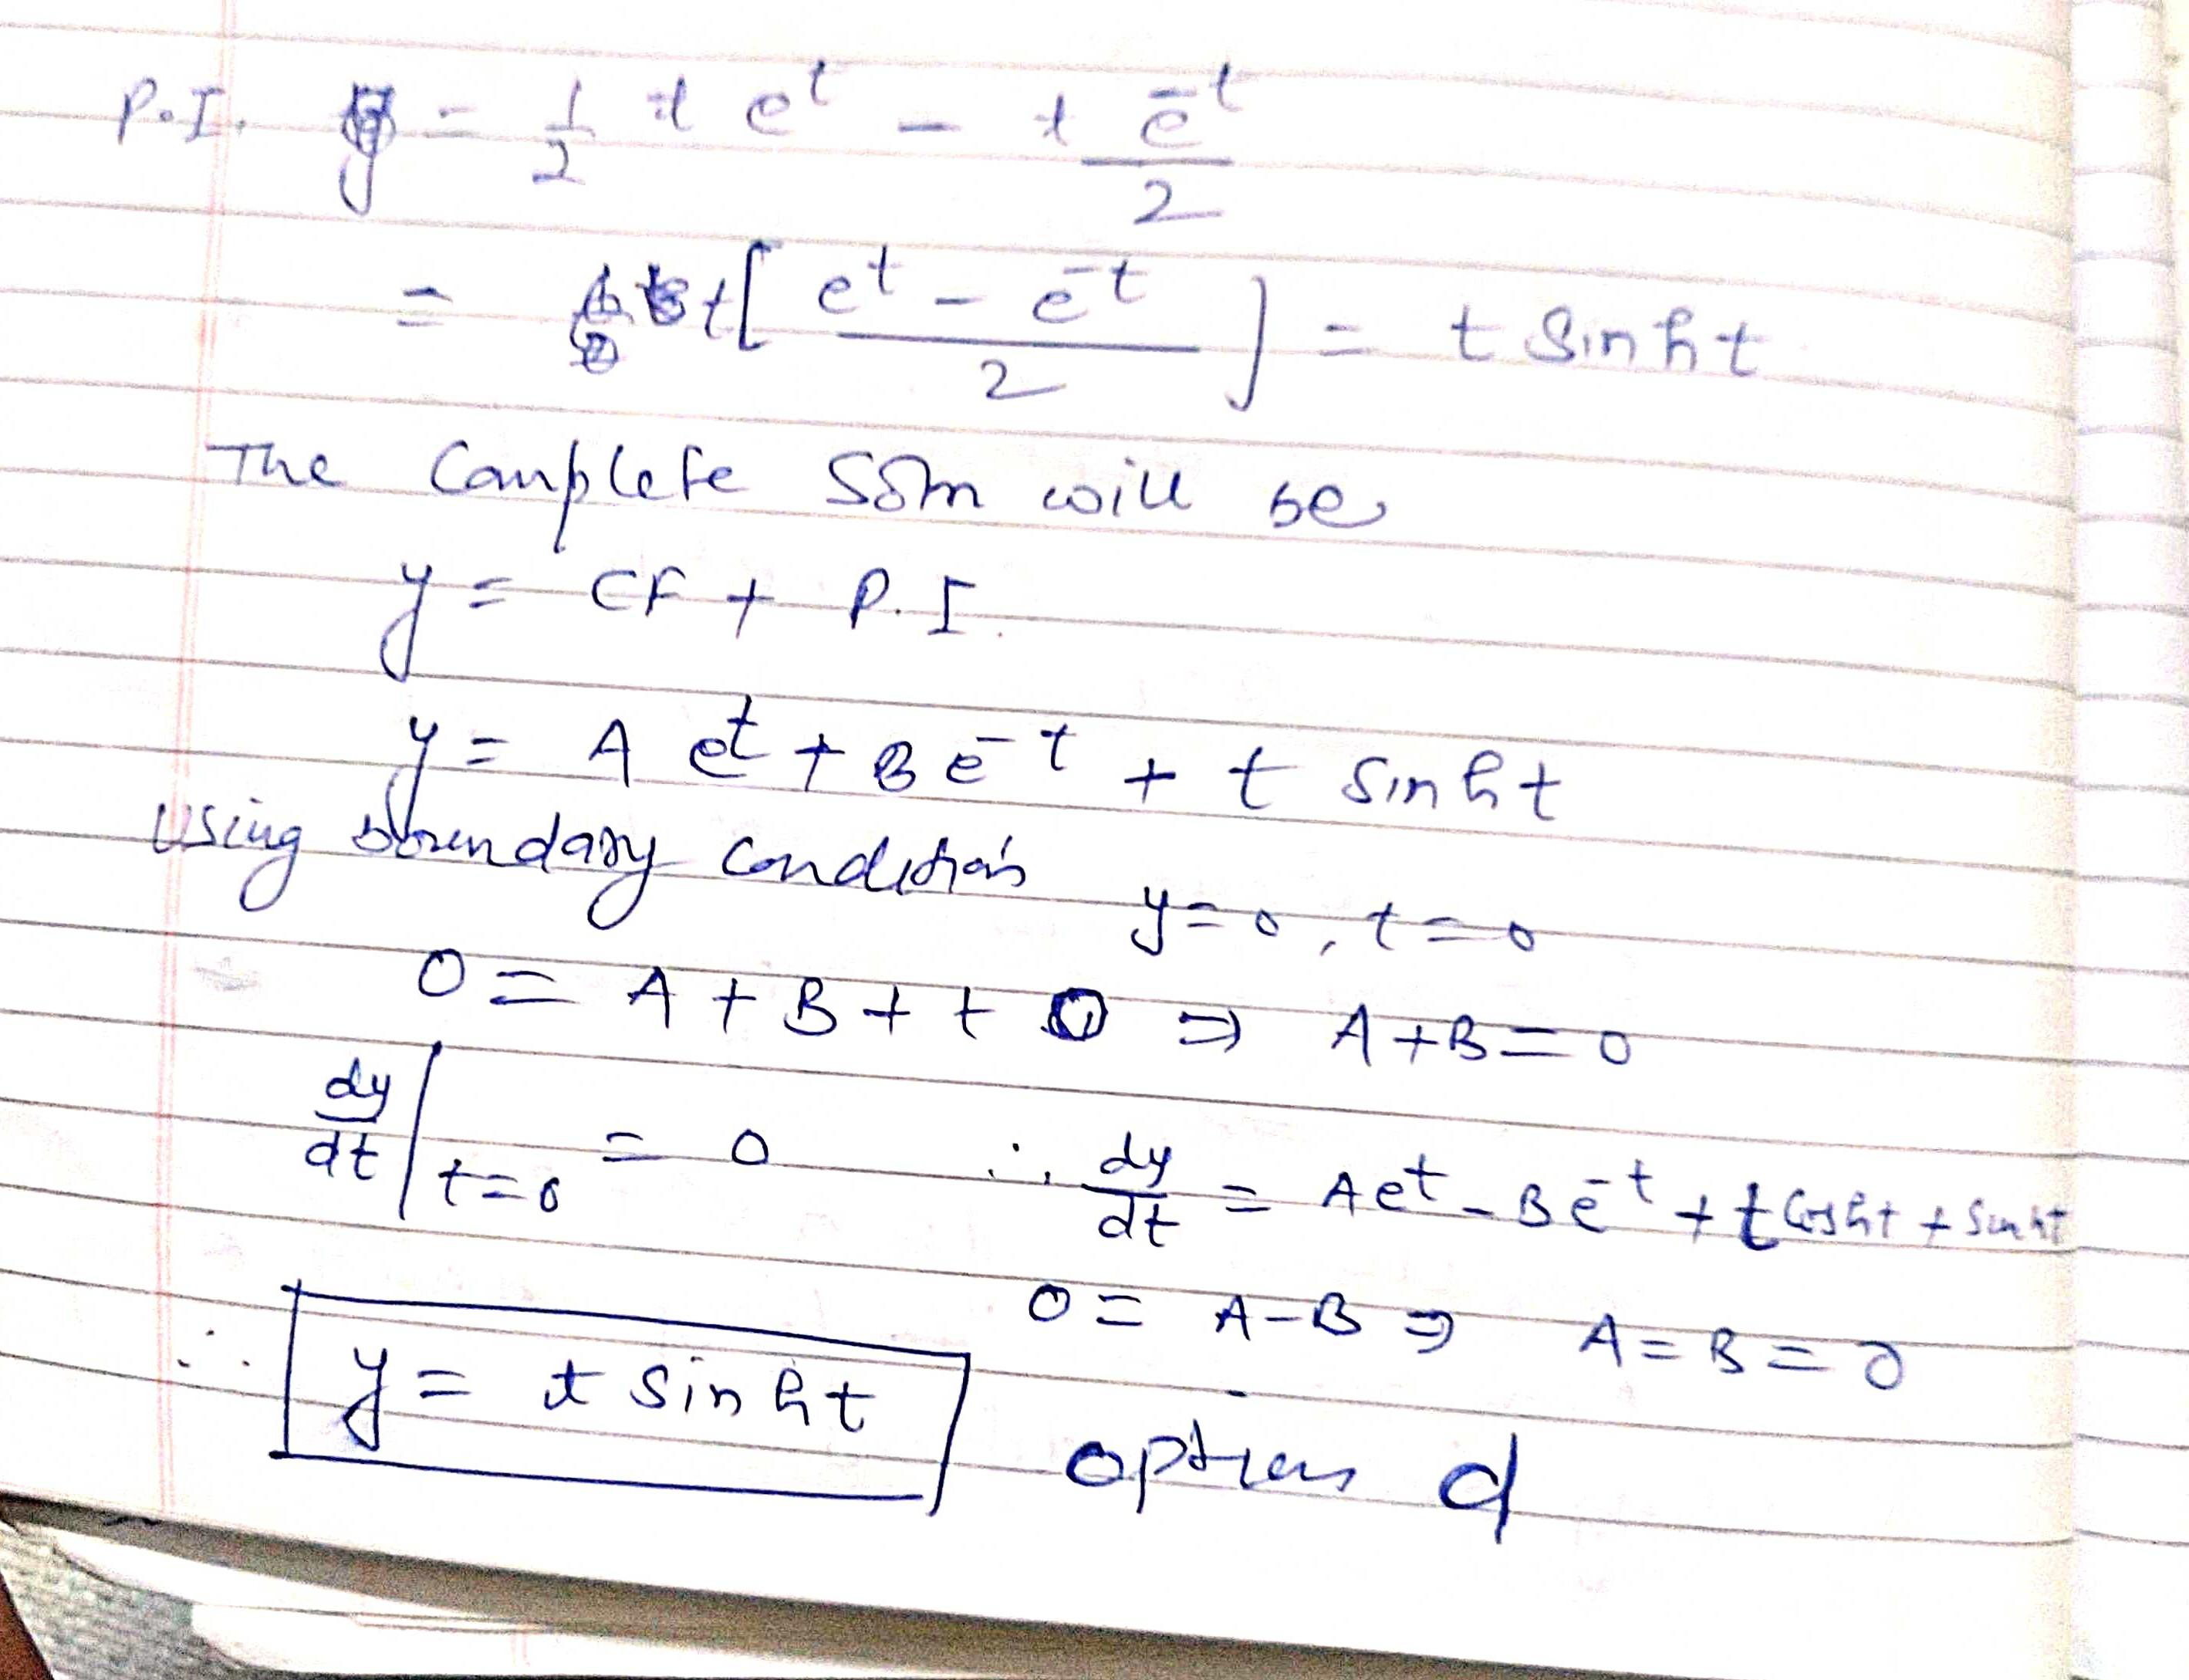 P.I. y = 1/2 t e^t - t e^-t / 2
= t [ e^t - e^-t / 2 ] = t Sinht
The Complete Soln will be
y = CF + P.I.
y = A e^t + B e^-t + t Sinht
Using boundary conditions y=0, t=0
0 = A + B + t 0 ⇒ A+B=0
dy/dt | t=0 = 0 ∴ dy/dt = Ae^t - Be^-t + t Cosht + Sinht
0 = A-B ⇒ A=B=0
∴ y = t Sinht option d